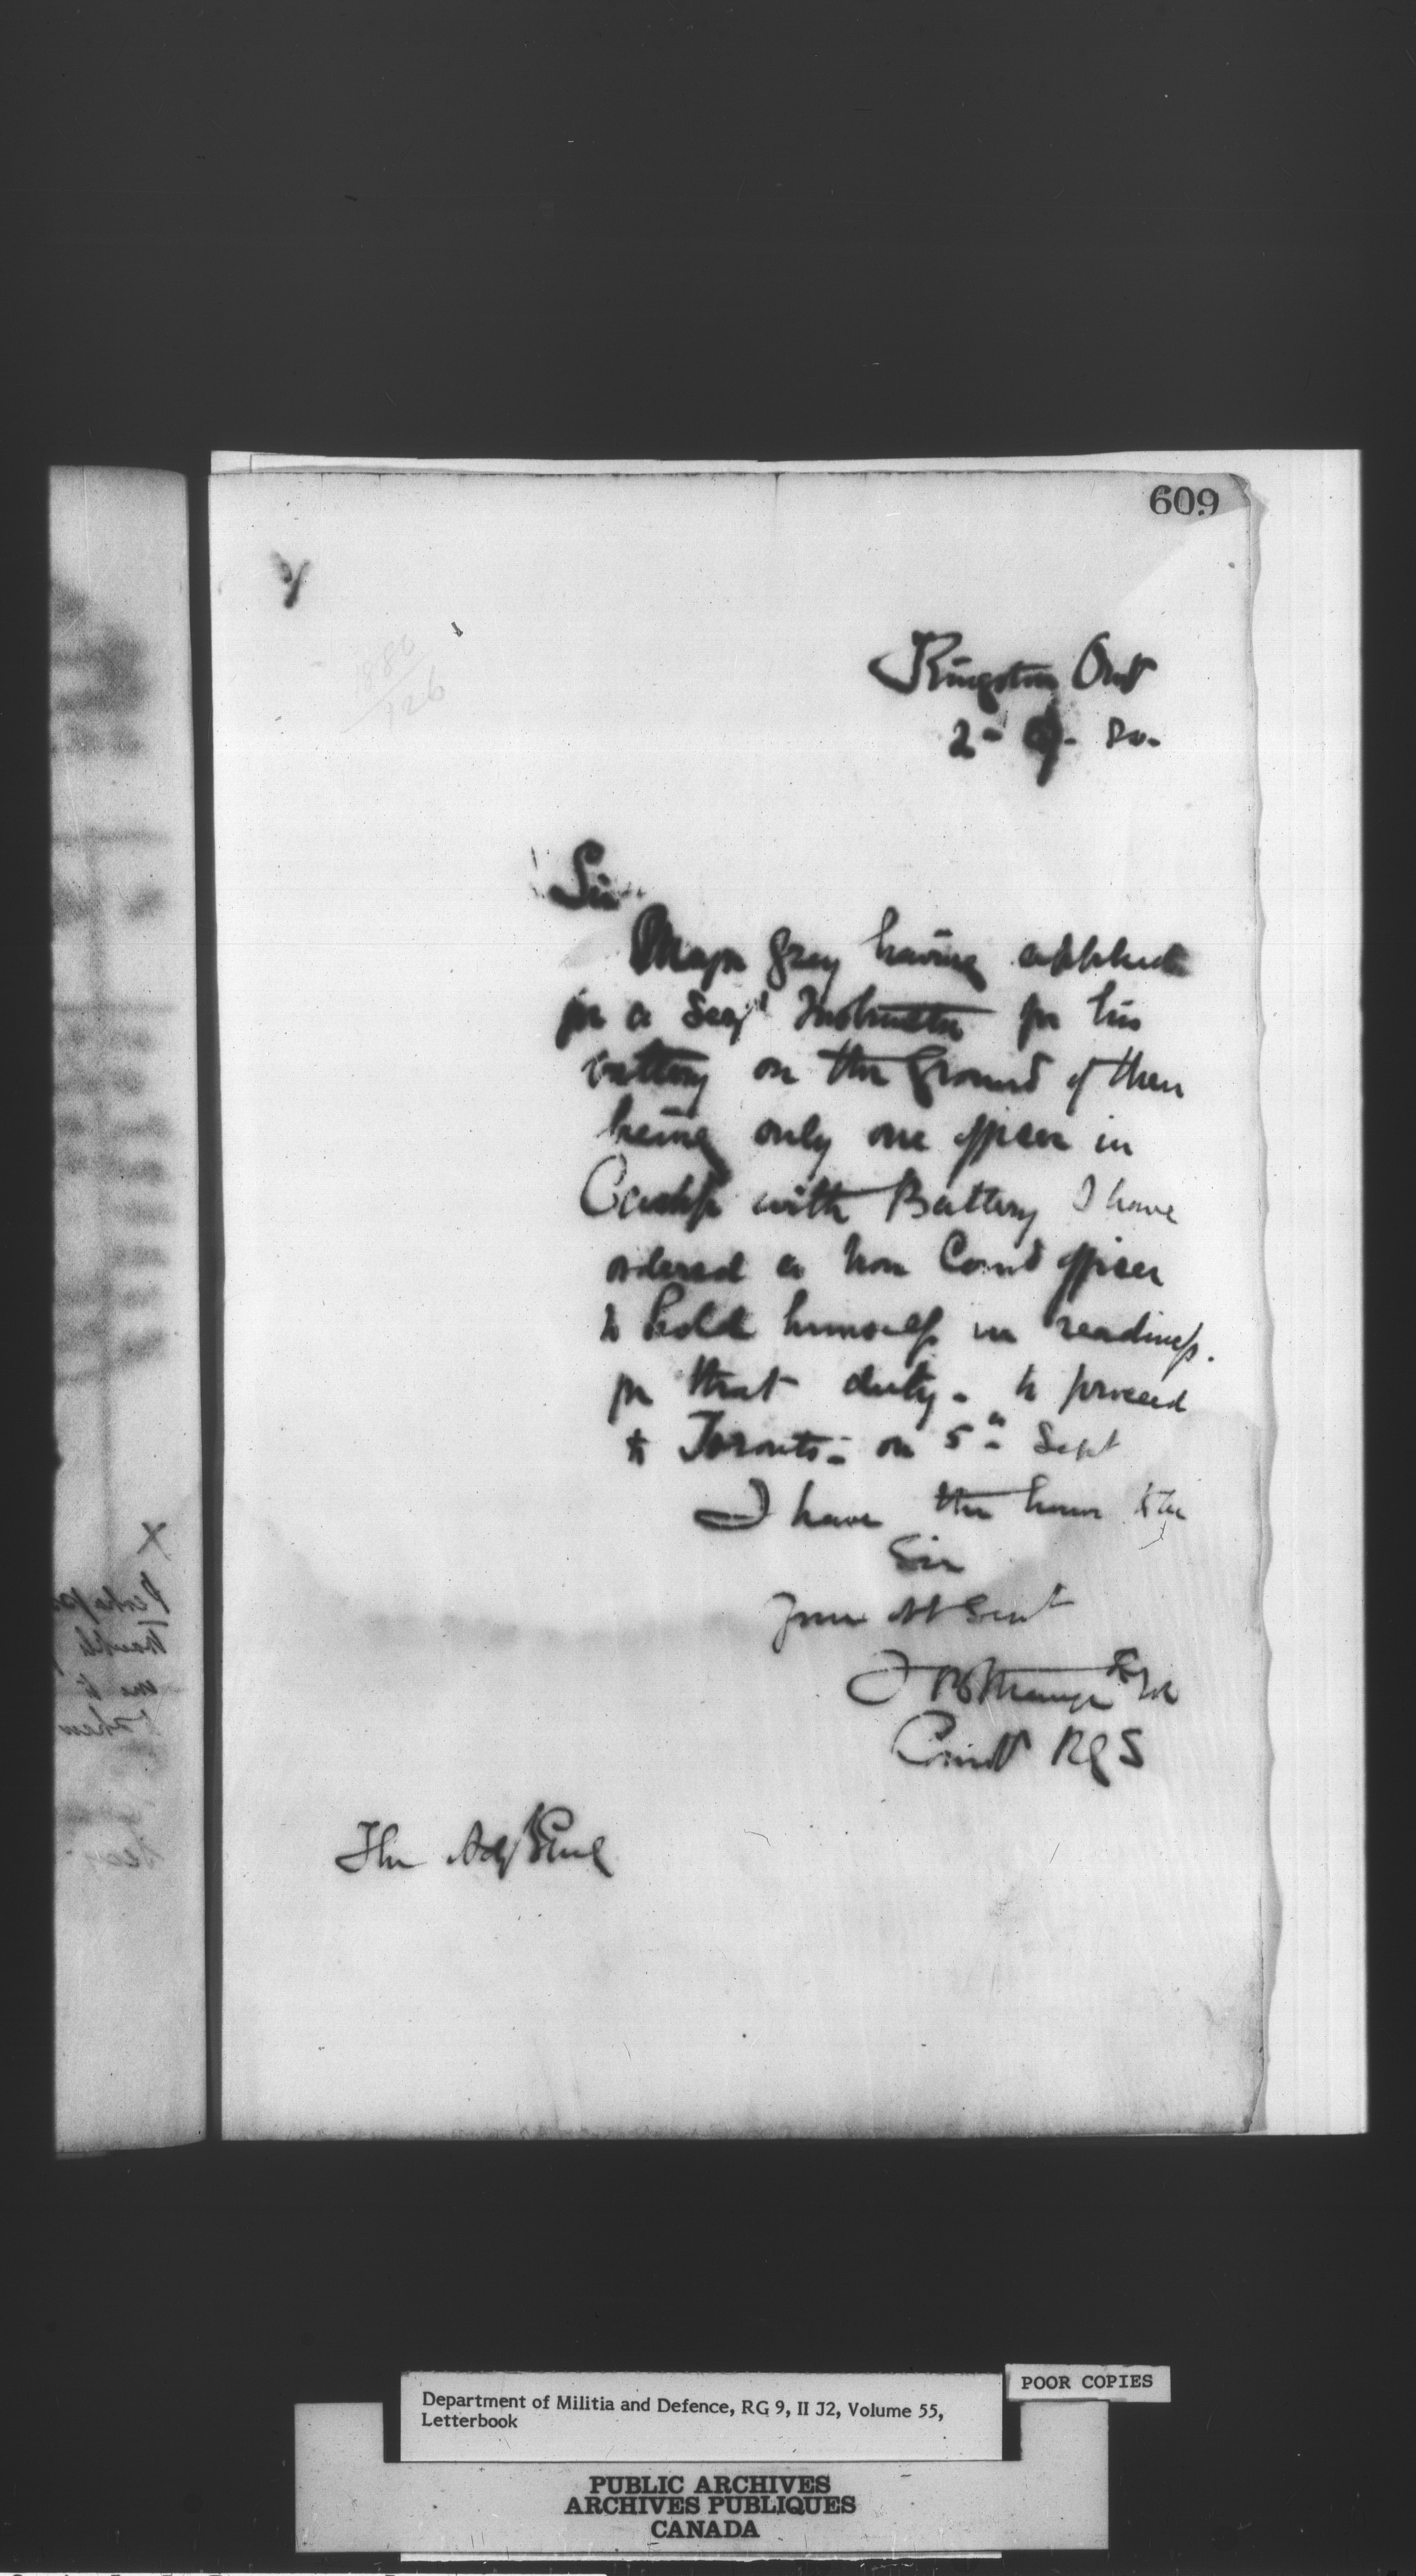 609
1880
126
Kingston Ont
2 - 9 - 80.
Sir
Major Grey having applied
for a Sergt Instructor for his
battery on the Ground of there
being only one officer in
Camp with Battery I have
ordered a Non Comd officer
to hold himself in readiness.
for that duty - to proceed
to Toronto - on 5th Sept
I have the honor to be
Sir
Your Obt Servt
T B Strange Lt Col
Comdt RGS
The Adjt Genl
X
Perhaps
me to
Department of Militia and Defence, RG 9, II J2, Volume 55,
Letterbook
POOR COPIES
PUBLIC ARCHIVES
ARCHIVES PUBLIQUES
CANADA